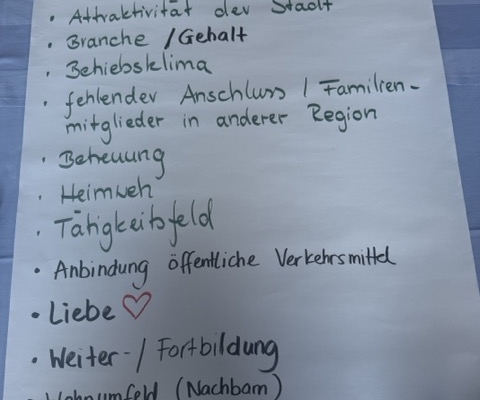 • Attraktivität der Stadt
• Branche / Gehalt
• Betriebsklima
• fehlender Anschluss / Familien-
mitglieder in anderer Region
• Betreuung
• Heimweh
• Tätigkeitsfeld
• Anbindung öffentliche Verkehrsmittel
• Liebe ♡
• Weiter- / Fortbildung
• Wohnumfeld (Nachbarn)